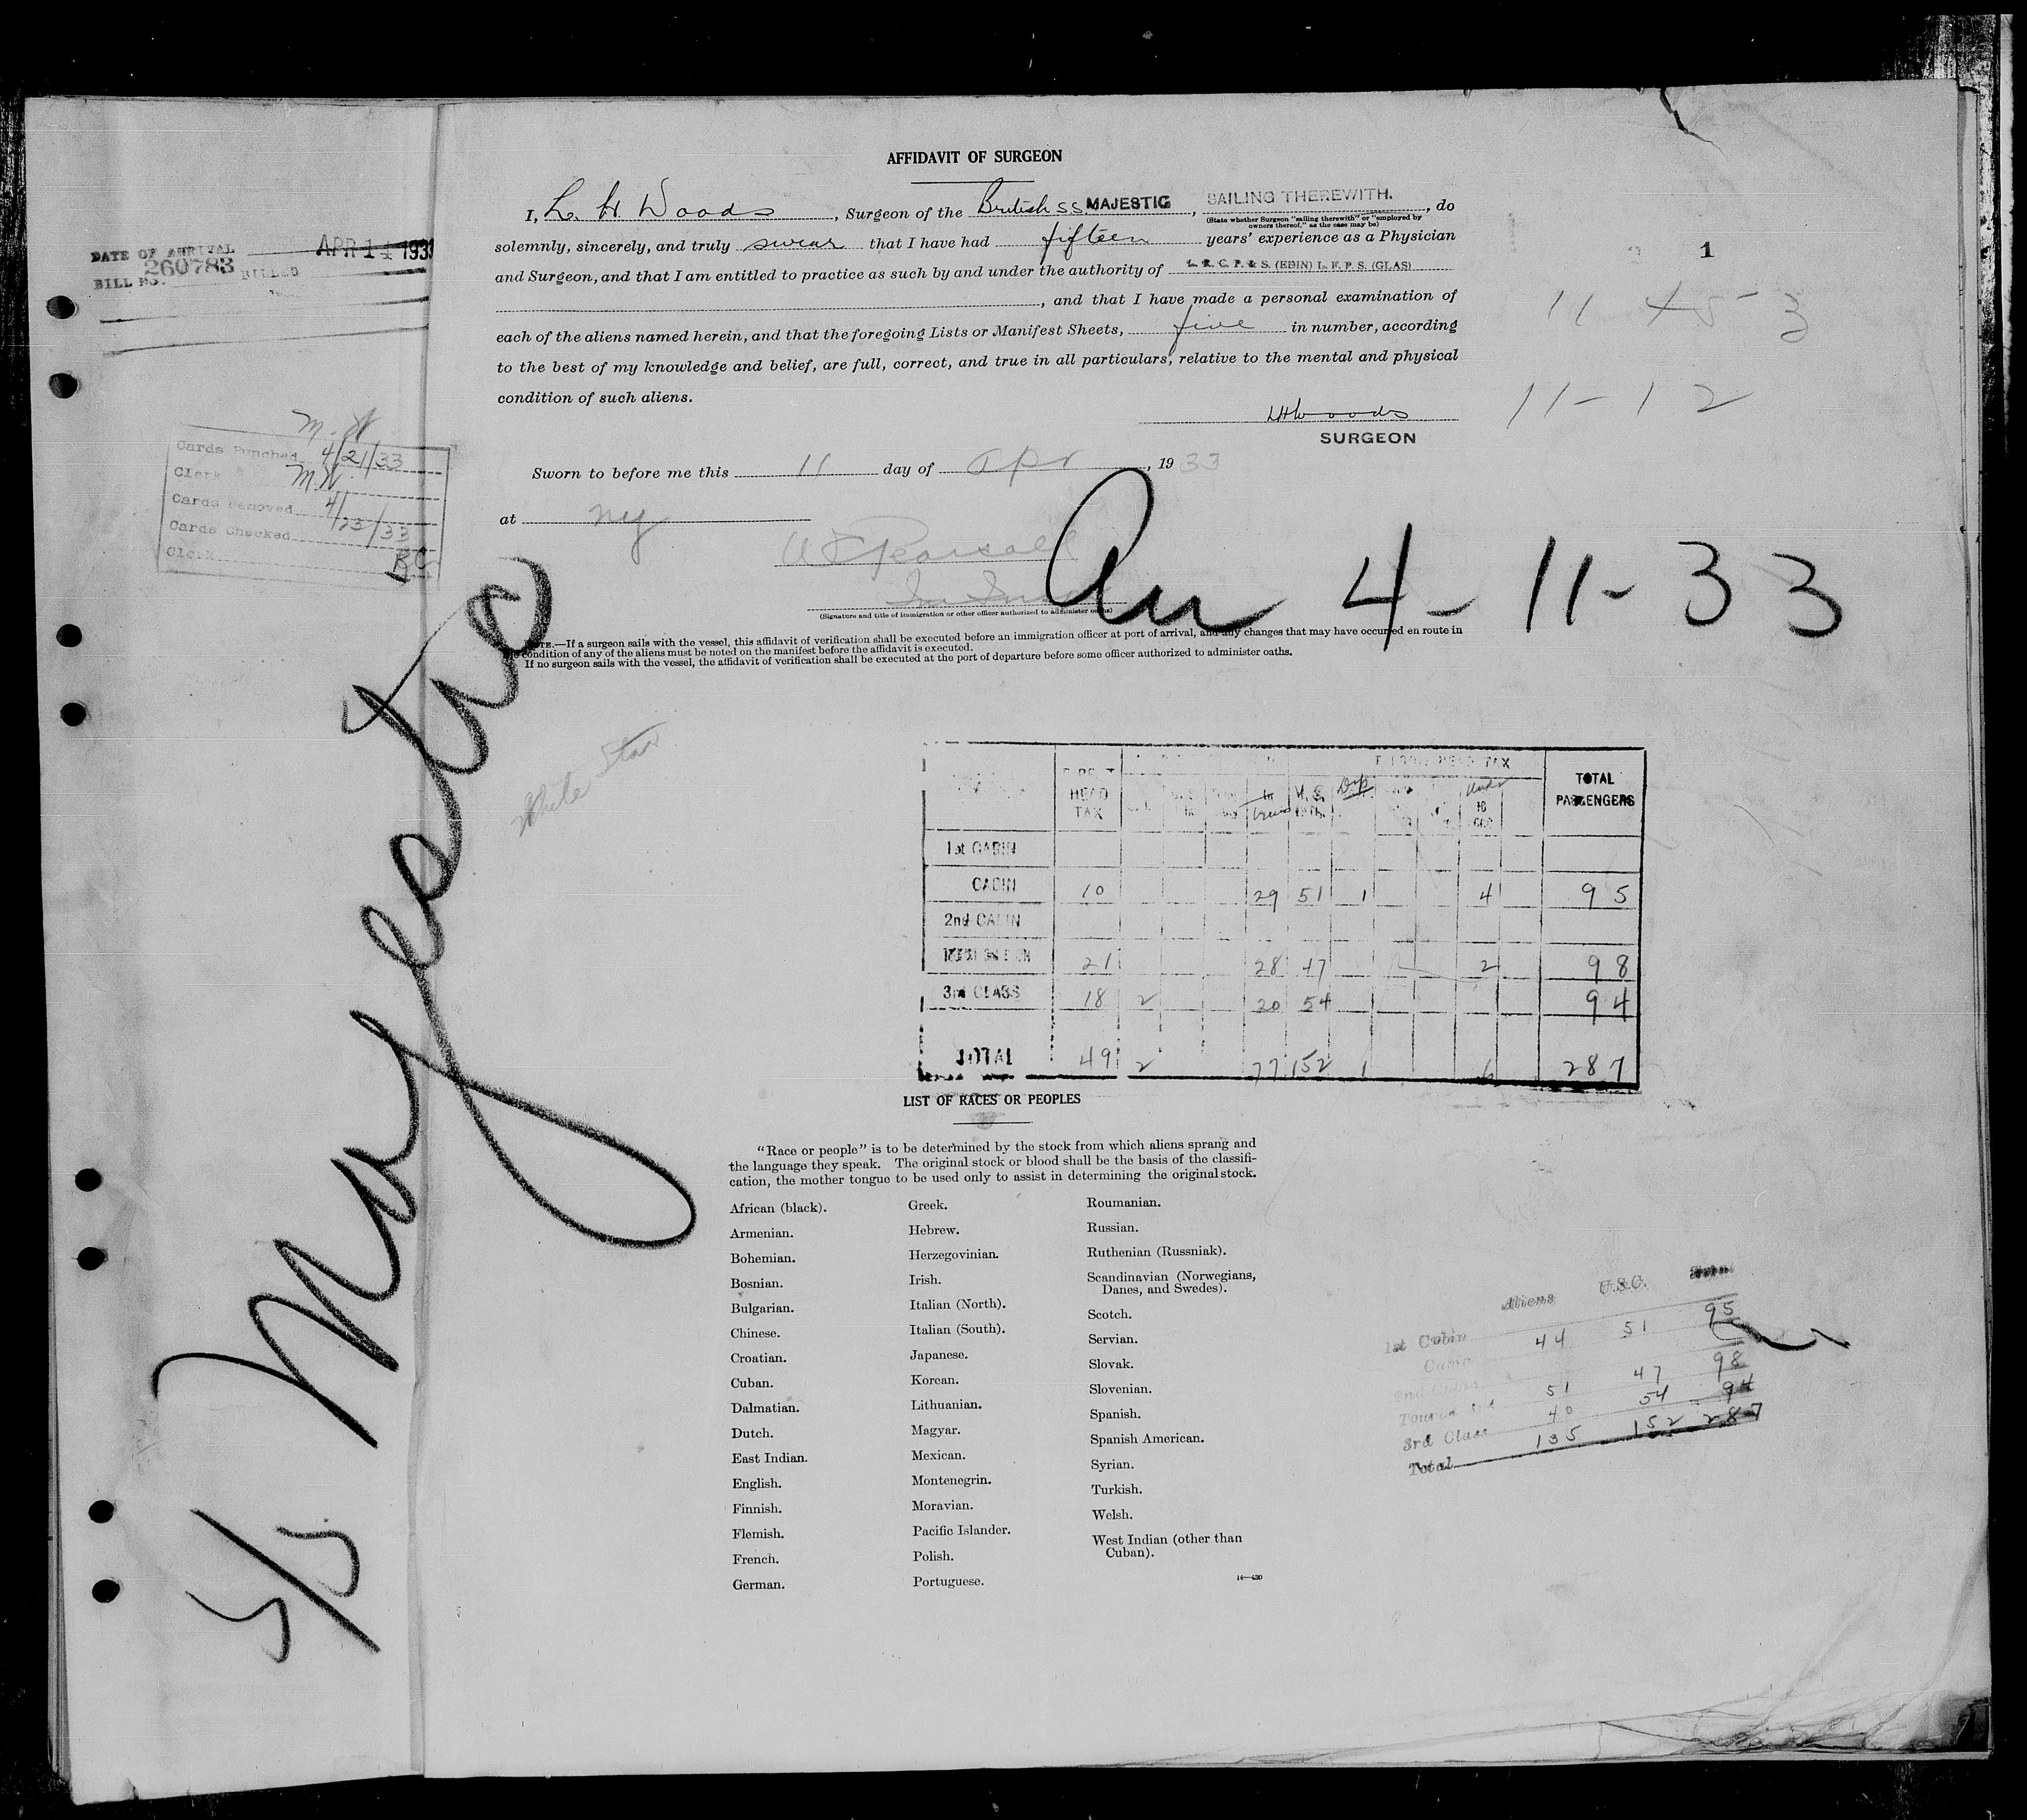 AFFIDAVIT OF SURGEON
I, L. H. Woods, Surgeon of the British SS. MAJESTIC, SAILING THEREWITH., do
(State whether Surgeon "sailing therewith" or "employed by
owners thereof," as the case may be)
solemnly, sincerely, and truly swear that I have had fifteen years' experience as a Physician
and Surgeon, and that I am entitled to practice as such by and under the authority of L. R. C. P. & S. (EDIN) L. F. P. S. (GLAS)
, and that I have made a personal examination of
each of the aliens named herein, and that the foregoing Lists or Manifest Sheets, five in number, according
to the best of my knowledge and belief, are full, correct, and true in all particulars, relative to the mental and physical
condition of such aliens.
LHWoods
SURGEON
Sworn to before me this 11 day of Apr, 1933
at NY
(Signature and title of immigration or other officer authorized to administer oaths)
NOTE.—If a surgeon sails with the vessel, this affidavit of verification shall be executed before an immigration officer at port of arrival, and any changes that may have occurred en route in
the condition of any of the aliens must be noted on the manifest before the affidavit is executed.
If no surgeon sails with the vessel, the affidavit of verification shall be executed at the port of departure before some officer authorized to administer oaths.
DATE OF ARRIVAL APR 11 1933
BILL NO. 260783 BILLED
M.W.
Cards Punched 4/21/33
Clerk M.W.
Cards Removed 4/23/33
Cards Checked
Clerk BC
1
11 453
11-12
Arr 4-11-33
S/S Majestic
White Star
DIRECT HEAD TAX
TOTAL PASSENGERS
1st CABIN
CABIN 10 29 51 1 4 95
2nd CABIN
21 28 47 2 98
3rd CLASS 18 2 20 54 94
TOTAL 49 2 77 152 1 6 287
LIST OF RACES OR PEOPLES
"Race or people" is to be determined by the stock from which aliens sprang and
the language they speak. The original stock or blood shall be the basis of the classifi-
cation, the mother tongue to be used only to assist in determining the original stock.
African (black).
Armenian.
Bohemian.
Bosnian.
Bulgarian.
Chinese.
Croatian.
Cuban.
Dalmatian.
Dutch.
East Indian.
English.
Finnish.
Flemish.
French.
German.
Greek.
Hebrew.
Herzegovinian.
Irish.
Italian (North).
Italian (South).
Japanese.
Korean.
Lithuanian.
Magyar.
Mexican.
Montenegrin.
Moravian.
Pacific Islander.
Polish.
Portuguese.
Roumanian.
Russian.
Ruthenian (Russniak).
Scandinavian (Norwegians,
Danes, and Swedes).
Scotch.
Servian.
Slovak.
Slovenian.
Spanish.
Spanish American.
Syrian.
Turkish.
Welsh.
West Indian (other than
Cuban).
14—430
Aliens U.S.C. Total
1st Cabin 44 51 95
Cabin
2nd Cabin
Tourist 3rd 51 47 98
3rd Class 40 54 94
Total 135 152 287